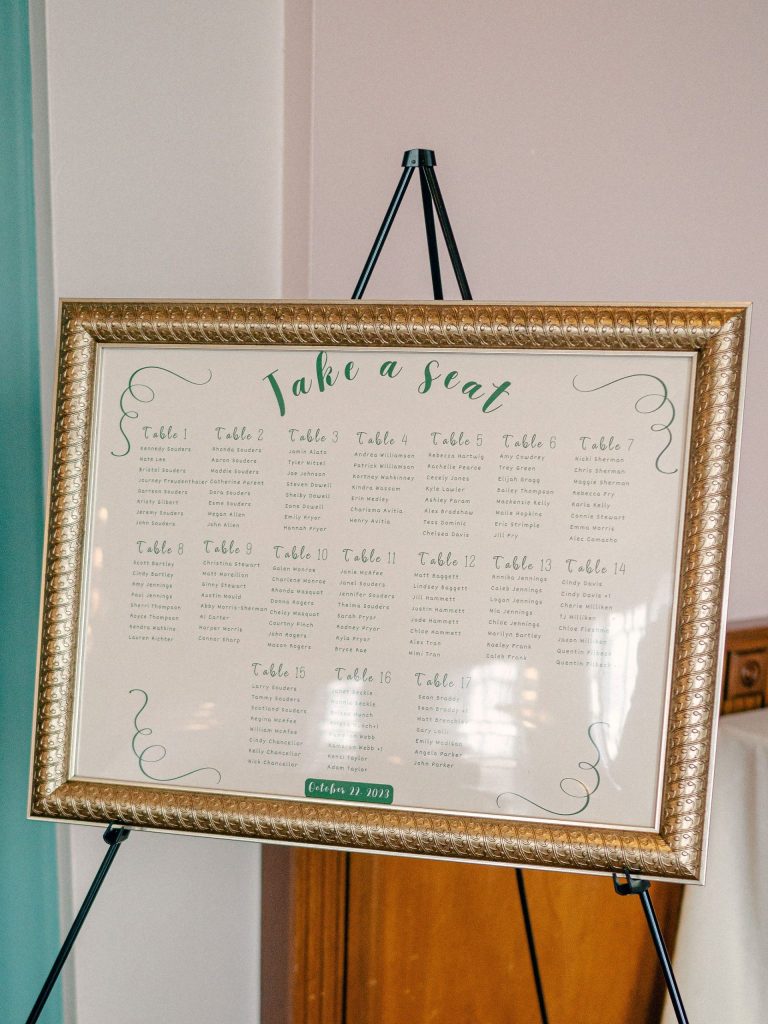 Take a Seat
Table 1
Kennedy Souders
Nate Lee
Bristol Souders
Journey Freudenthaler
Garrison Souders
Kristy Gilbert
Jeremy Souders
John Souders
Table 2
Rhonda Souders
Aaron Souders
Maddie Souders
Catherine Parent
Dora Souders
Esme Souders
Megan Allen
John Allen
Table 3
Jamin Alato
Tyler Kitsel
Joe Johnson
Steven Dowell
Shelby Dowell
Zane Dowell
Emily Pryor
Hannah Pryor
Table 4
Andrea Williamson
Patrick Williamson
Kortney Muhkinney
Kindra Wassom
Erin Medley
Charisma Avitia
Henry Avitia
Table 5
Rebecca Hartwig
Rachelle Pearce
Cecely Jones
Kyle Lawler
Ashley Param
Alex Bradshaw
Tess Dominic
Chelsea Davis
Table 6
Amy Cowdrey
Trey Green
Elijah Bragg
Bailey Thompson
Mackenzie Kelly
Malia Hopkins
Eric Strimple
Jill Fry
Table 7
Nicki Sherman
Chris Sherman
Maggie Sherman
Rebecca Fry
Karla Kelly
Connie Stewart
Emma Morris
Alec Camacho
Table 8
Scott Bartley
Cindy Bartley
Amy Jennings
Paul Jennings
Sherri Thompson
Royce Thompson
Kendra Watkins
Lauren Richter
Table 9
Christina Stewart
Matt Moreillon
Ginny Stewart
Austin Mould
Abby Morris-Sherman
Al Carter
Harper Morris
Connor Sharp
Table 10
Galen Monroe
Charlene Monroe
Rhonda Masquat
Donna Rogers
Chelcy Masquat
Courtny Finch
John Rogers
Mason Rogers
Table 11
Janie McAfee
Janel Souders
Jennifer Souders
Thelma Souders
Sarah Pryor
Rodney Pryor
Kyla Pryor
Bryce Rae
Table 12
Matt Baggett
Lindsey Baggett
Jill Hammett
Justin Hammett
Jude Hammett
Chloe Hammett
Alex Tran
Mimi Tran
Table 13
Annika Jennings
Caleb Jennings
Logan Jennings
Mia Jennings
Chloe Jennings
Marilyn Bartley
Kaeley Frank
Caleb Frank
Table 14
Cindy Davis
Cindy Davis +1
Cherie Milliken
TJ Milliken
Chloe
Jason Milliken
Quentin
Quentin
Table 15
Larry Souders
Tammy Souders
Scotland Souders
Regina McAfee
William McAfee
Cindy Chancellor
Kelly Chancellor
Nick Chancellor
Table 16
Janet Seckle
Ronnie Seckle
Munch
Munch+1
Webb
Kameryn Webb +1
Kenzi Taylor
Adam Taylor
Table 17
Sean Braddy
Sean Braddy +1
Matt Brenchley
Gary Lolli
Emily Madison
Angela Parker
John Parker
October 22, 2023